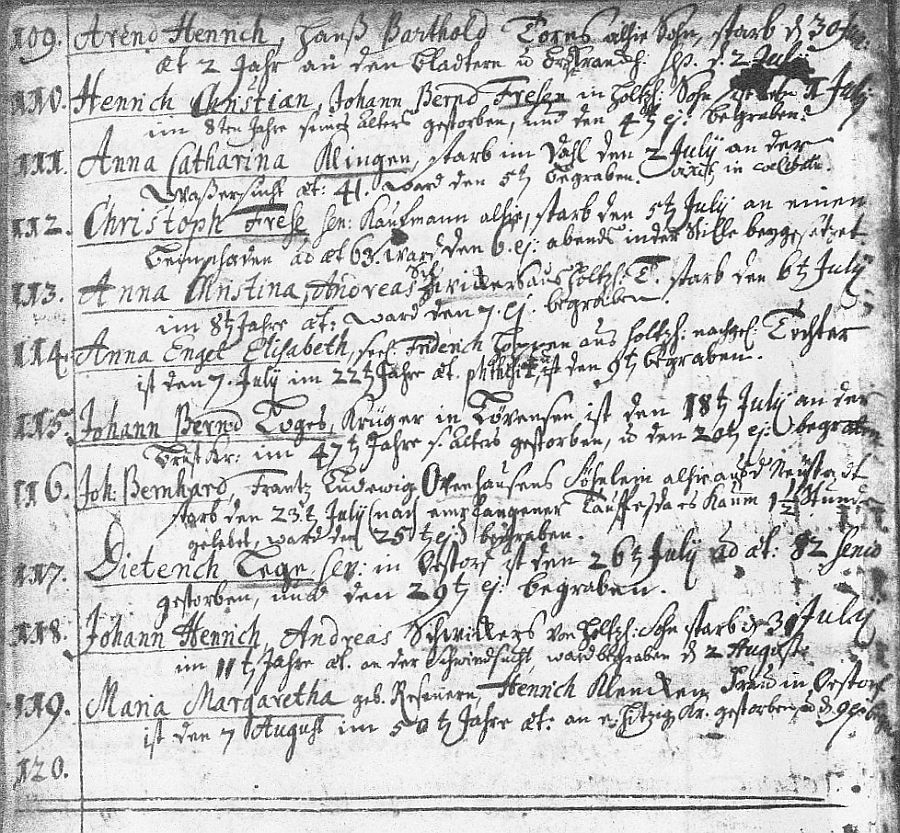 109. Arend Henrich, Hanß Barthold Tores alhie Sohn, starb d 30 Jun:
æt 2 Jahr an den Bladtern u d. 2 July
110. Henrich Christian, Johann Bernd Fresen in Holtzh: Sohn July
im 8ten Jahre seines Alters gestorben, und den 4t ej: begraben:
111. Anna Catharina Klingen, starb im Dahl den 2 July an der
Waßersucht æt: 41. ward den 5t begraben. in cœlibatu.
112. Christoph Frese sen: Kaufmann alhie, starb den 5t July an einen
Beinschaden æt 63. ward den 6. ej: abends in der Stille beygesetzet.
113. Anna Christina, Andreas Schwikers aus Holtzh: T. starb den 6t July
im 8t Jahre æt: ward den 7. ej: begraben.
114. Anna Engel Elisabeth, seel. Friderich aus Holtzh: nachgel. Tochter
ist den 7. July im 22t Jahre æt. ist den 9t begraben.
115. Johann Bernd Toges, Krüger in Dörensen ist den 18t July an der
Brust Kr: im 47t Jahre s. Alters gestorben, u den 20t ej: begraben
116. Joh: Bernhard, Frantz Ludewig Ovenhausens Söhnlein alhie aus d Neustadt
starb den 23.t July (nach empfangener Tauffe, da es kaum 1 1/2 Stunde
gelebet, ward den (25t ej:) begraben.
117. Dieterich Tege sen: in Oestorf ist den 26t July ad æt: 82 senio
gestorben, und den 29t ej: begraben.
118. Johann Henrich, Andreas Schwikers von Holtzh: Sohn starb d 30 July
im 11t Jahre æt. an der Schwindsucht, ward begraben d 2 August.
119. Maria Margaretha geb. Resenern, Henrich Klenken Frau in Oestorf
ist den 7 August im 50t Jahre æt: an e. hitzig. Kr. gestorben, u d. 9 ej: begr.
120.